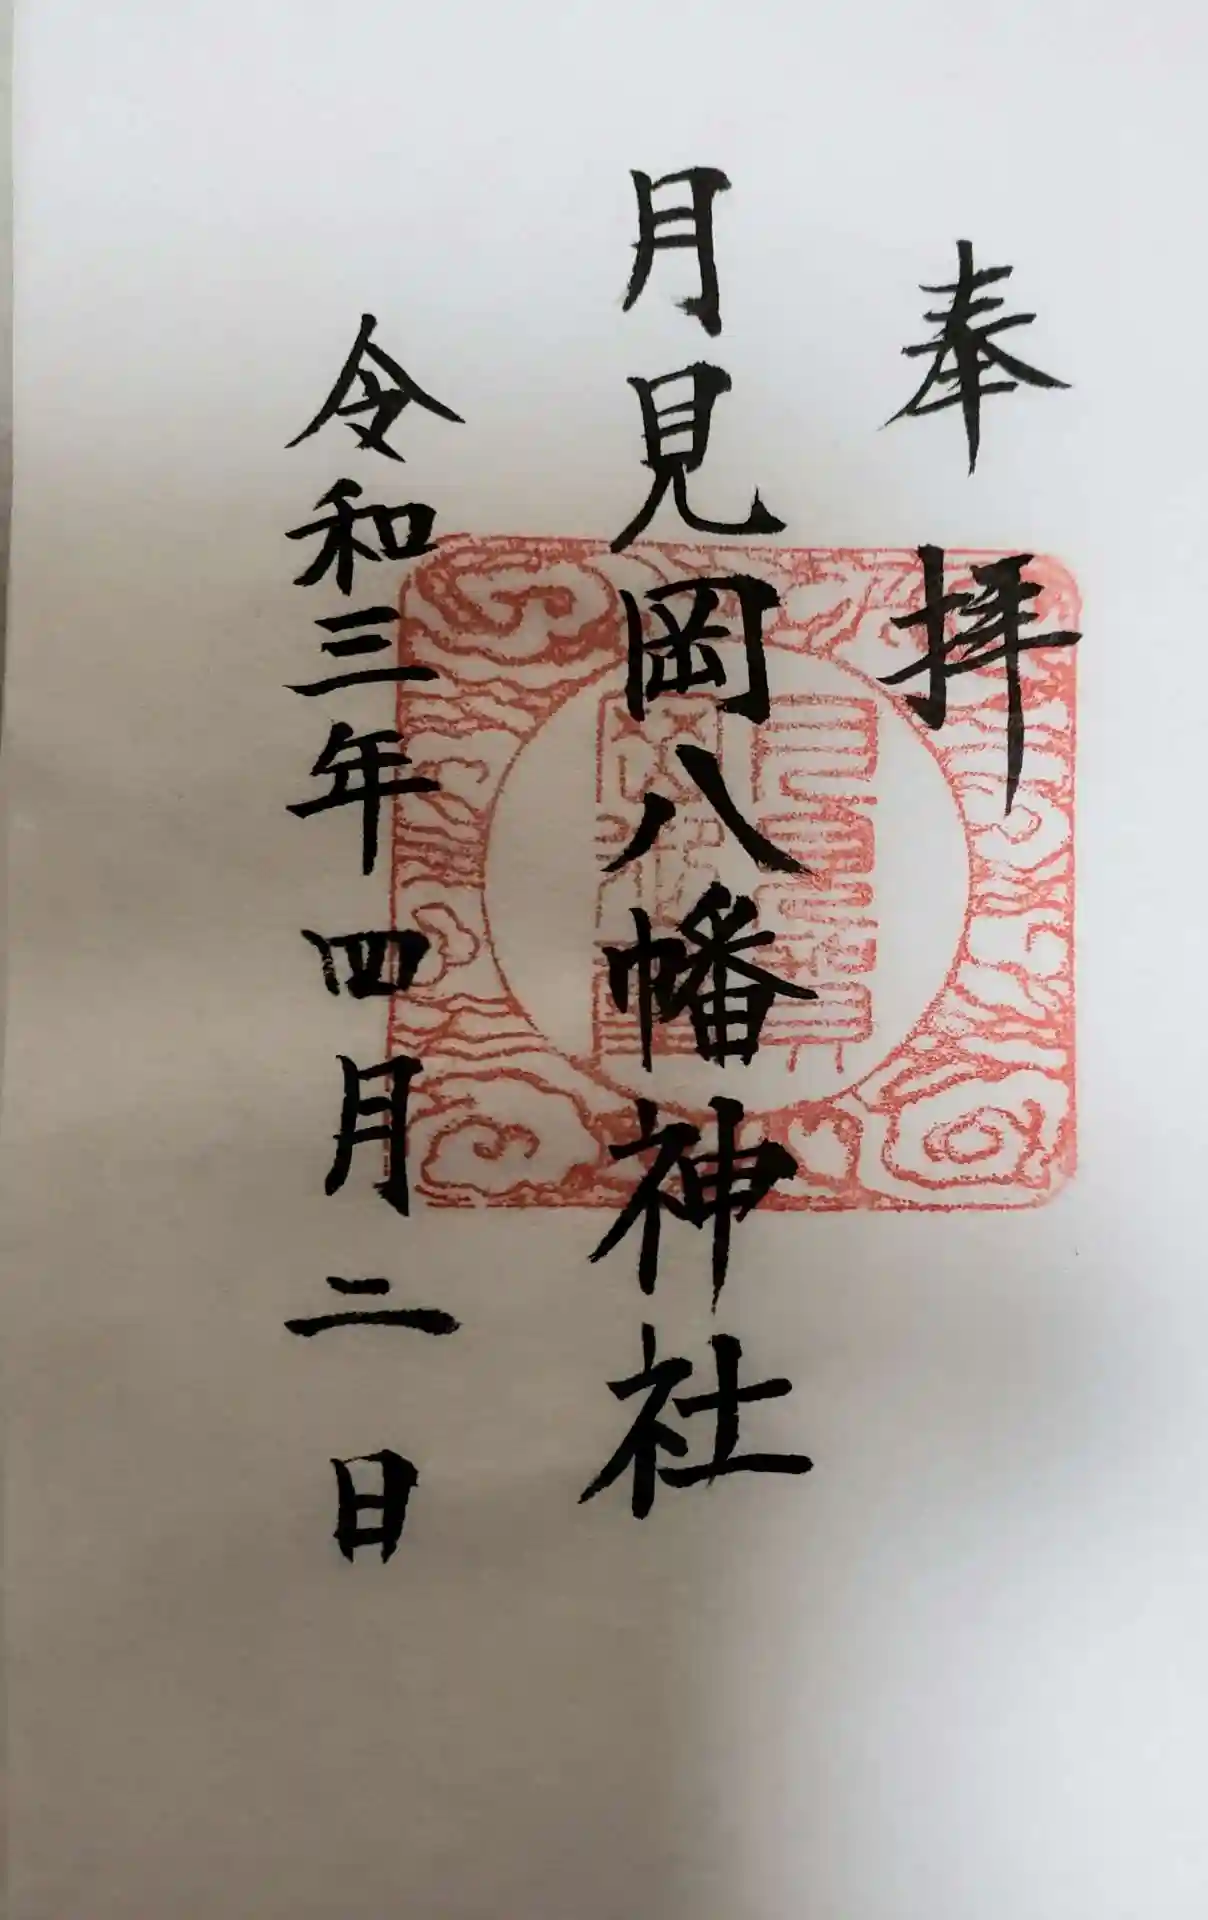 奉拝
月見岡八幡神社
令和三年四月二日